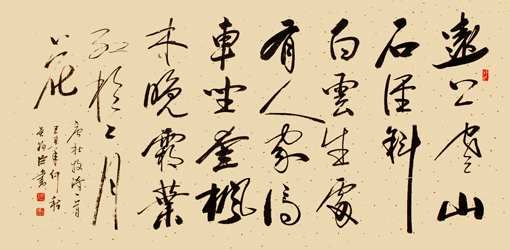 遠上寒山
石徑斜
白雲生處
有人家停
車坐愛楓
林晚霜葉
紅於二月
花
唐杜牧詩一首
年仲秋
書